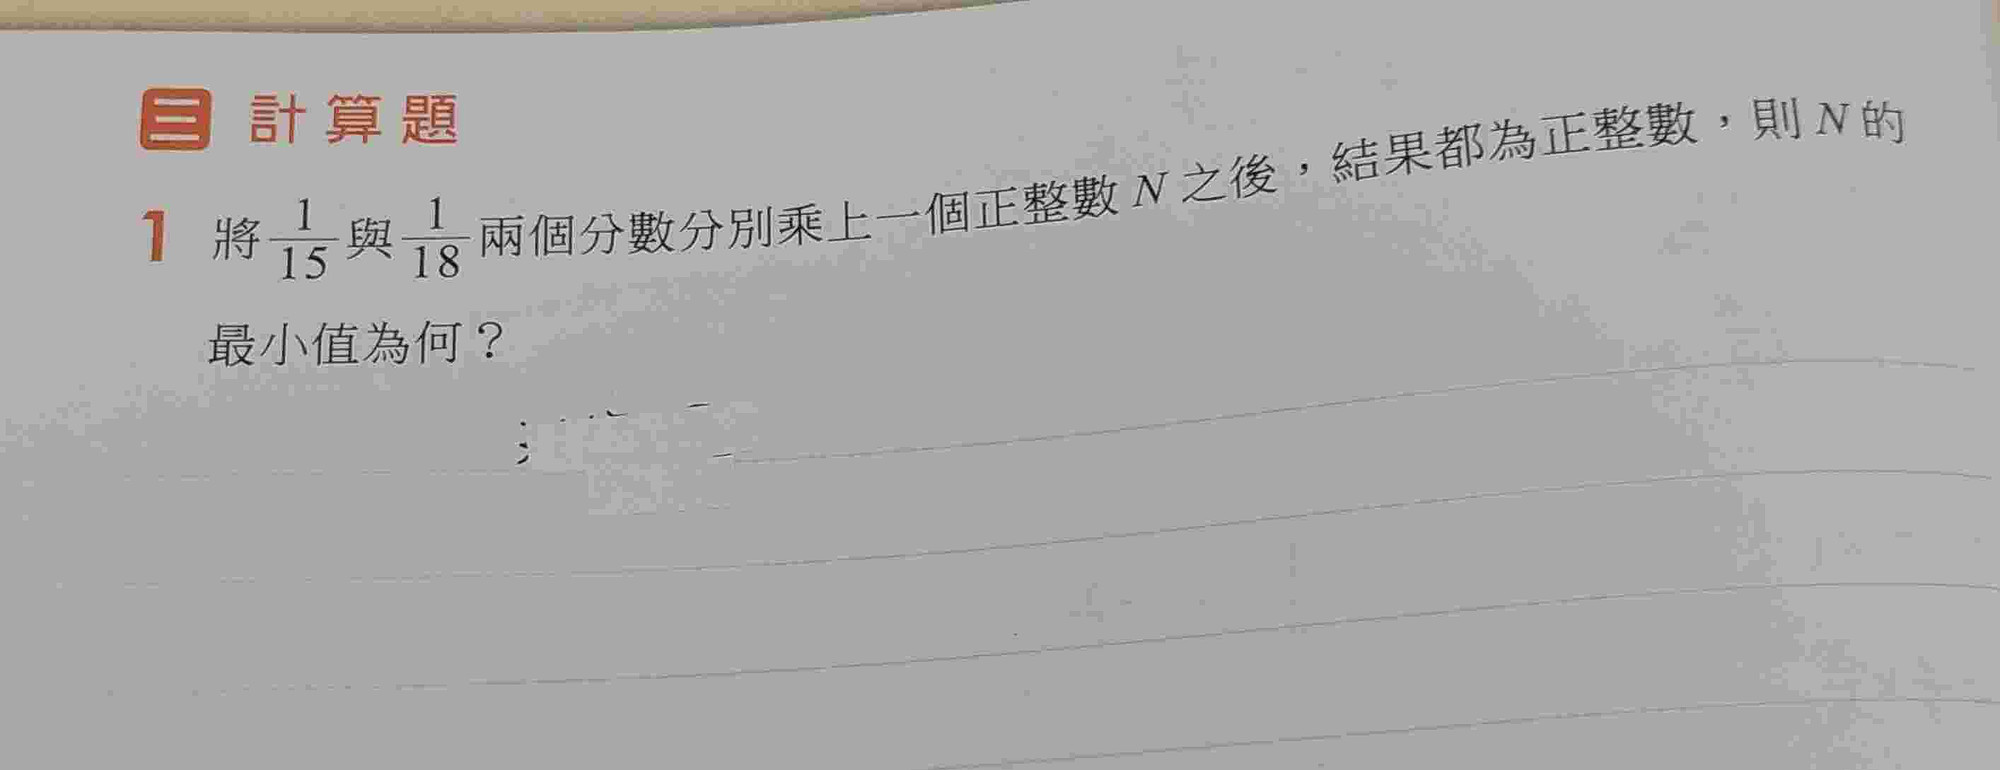 三 計算題
1 將 1/15 與 1/18 兩個分數分別乘上一個正整數 N 之後，結果都為正整數，則 N 的
最小值為何？